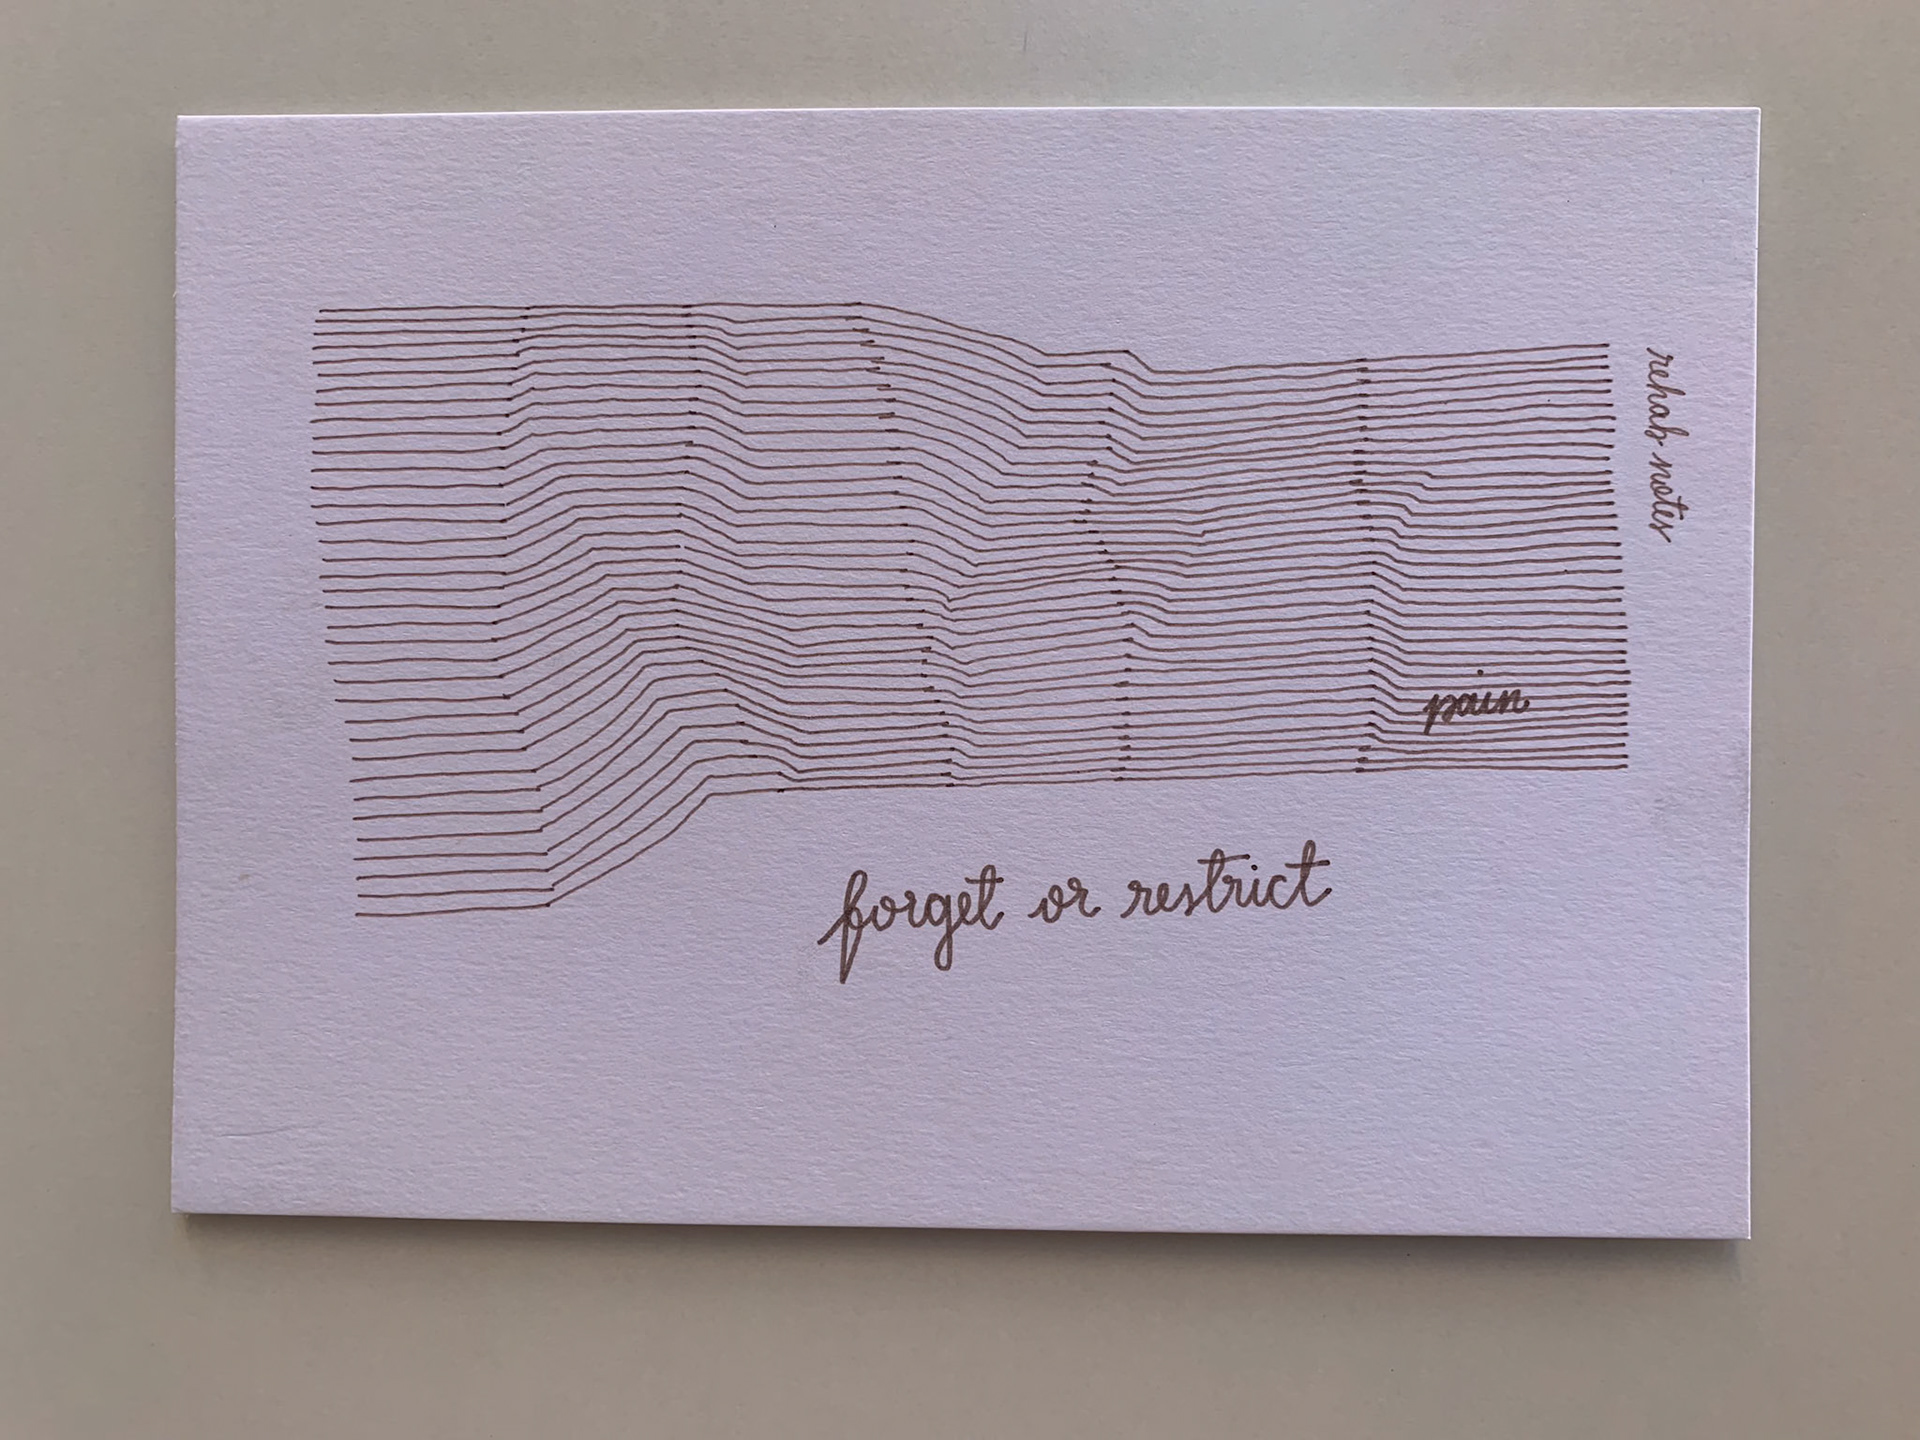 rehab notes
pain
forget or restrict